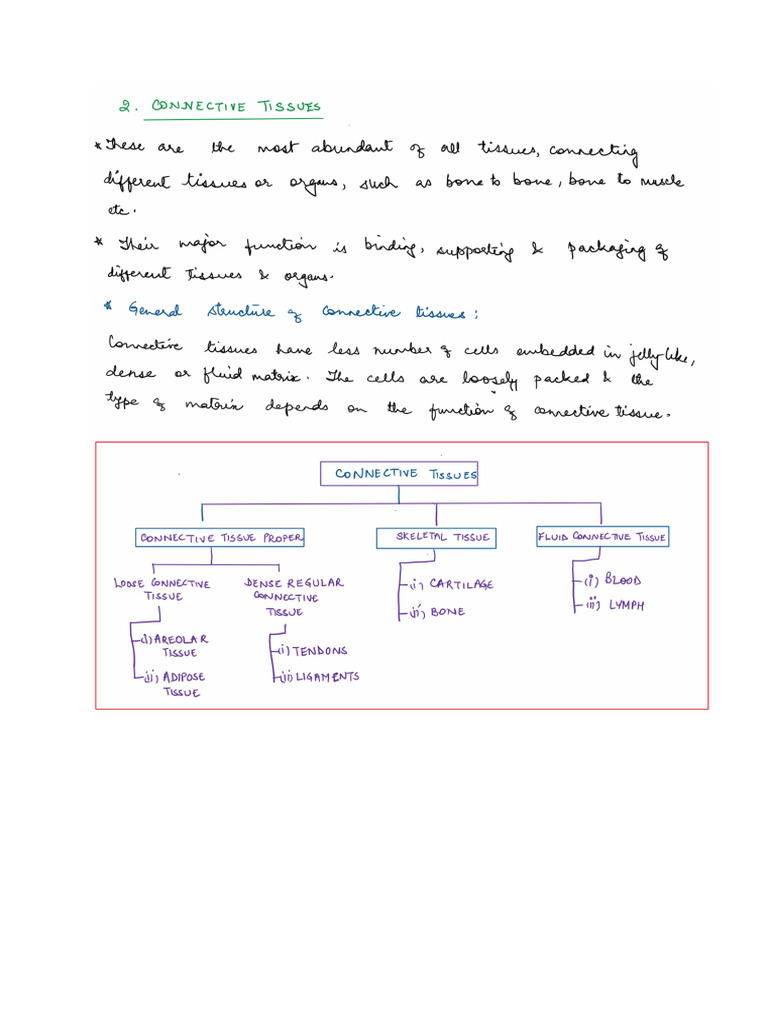 2. CONNECTIVE TISSUES
* These are the most abundant of all tissues, connecting
different tissues or organs, such as bone to bone, bone to muscle
etc.
* Their major function is binding, supporting & packaging of
different tissues & organs.
* General structure of connective tissues:
Connective tissues have less number of cells embedded in jelly-like,
dense or fluid matrix. The cells are loosely packed & the
type of matrix depends on the function of connective tissue.
CONNECTIVE TISSUES
CONNECTIVE TISSUE PROPER
SKELETAL TISSUE
FLUID CONNECTIVE TISSUE
LOOSE CONNECTIVE
TISSUE
(i) AREOLAR
TISSUE
(ii) ADIPOSE
TISSUE
DENSE REGULAR
CONNECTIVE
TISSUE
(i) TENDONS
(ii) LIGAMENTS
(i) CARTILAGE
(ii) BONE
(i) BLOOD
(ii) LYMPH